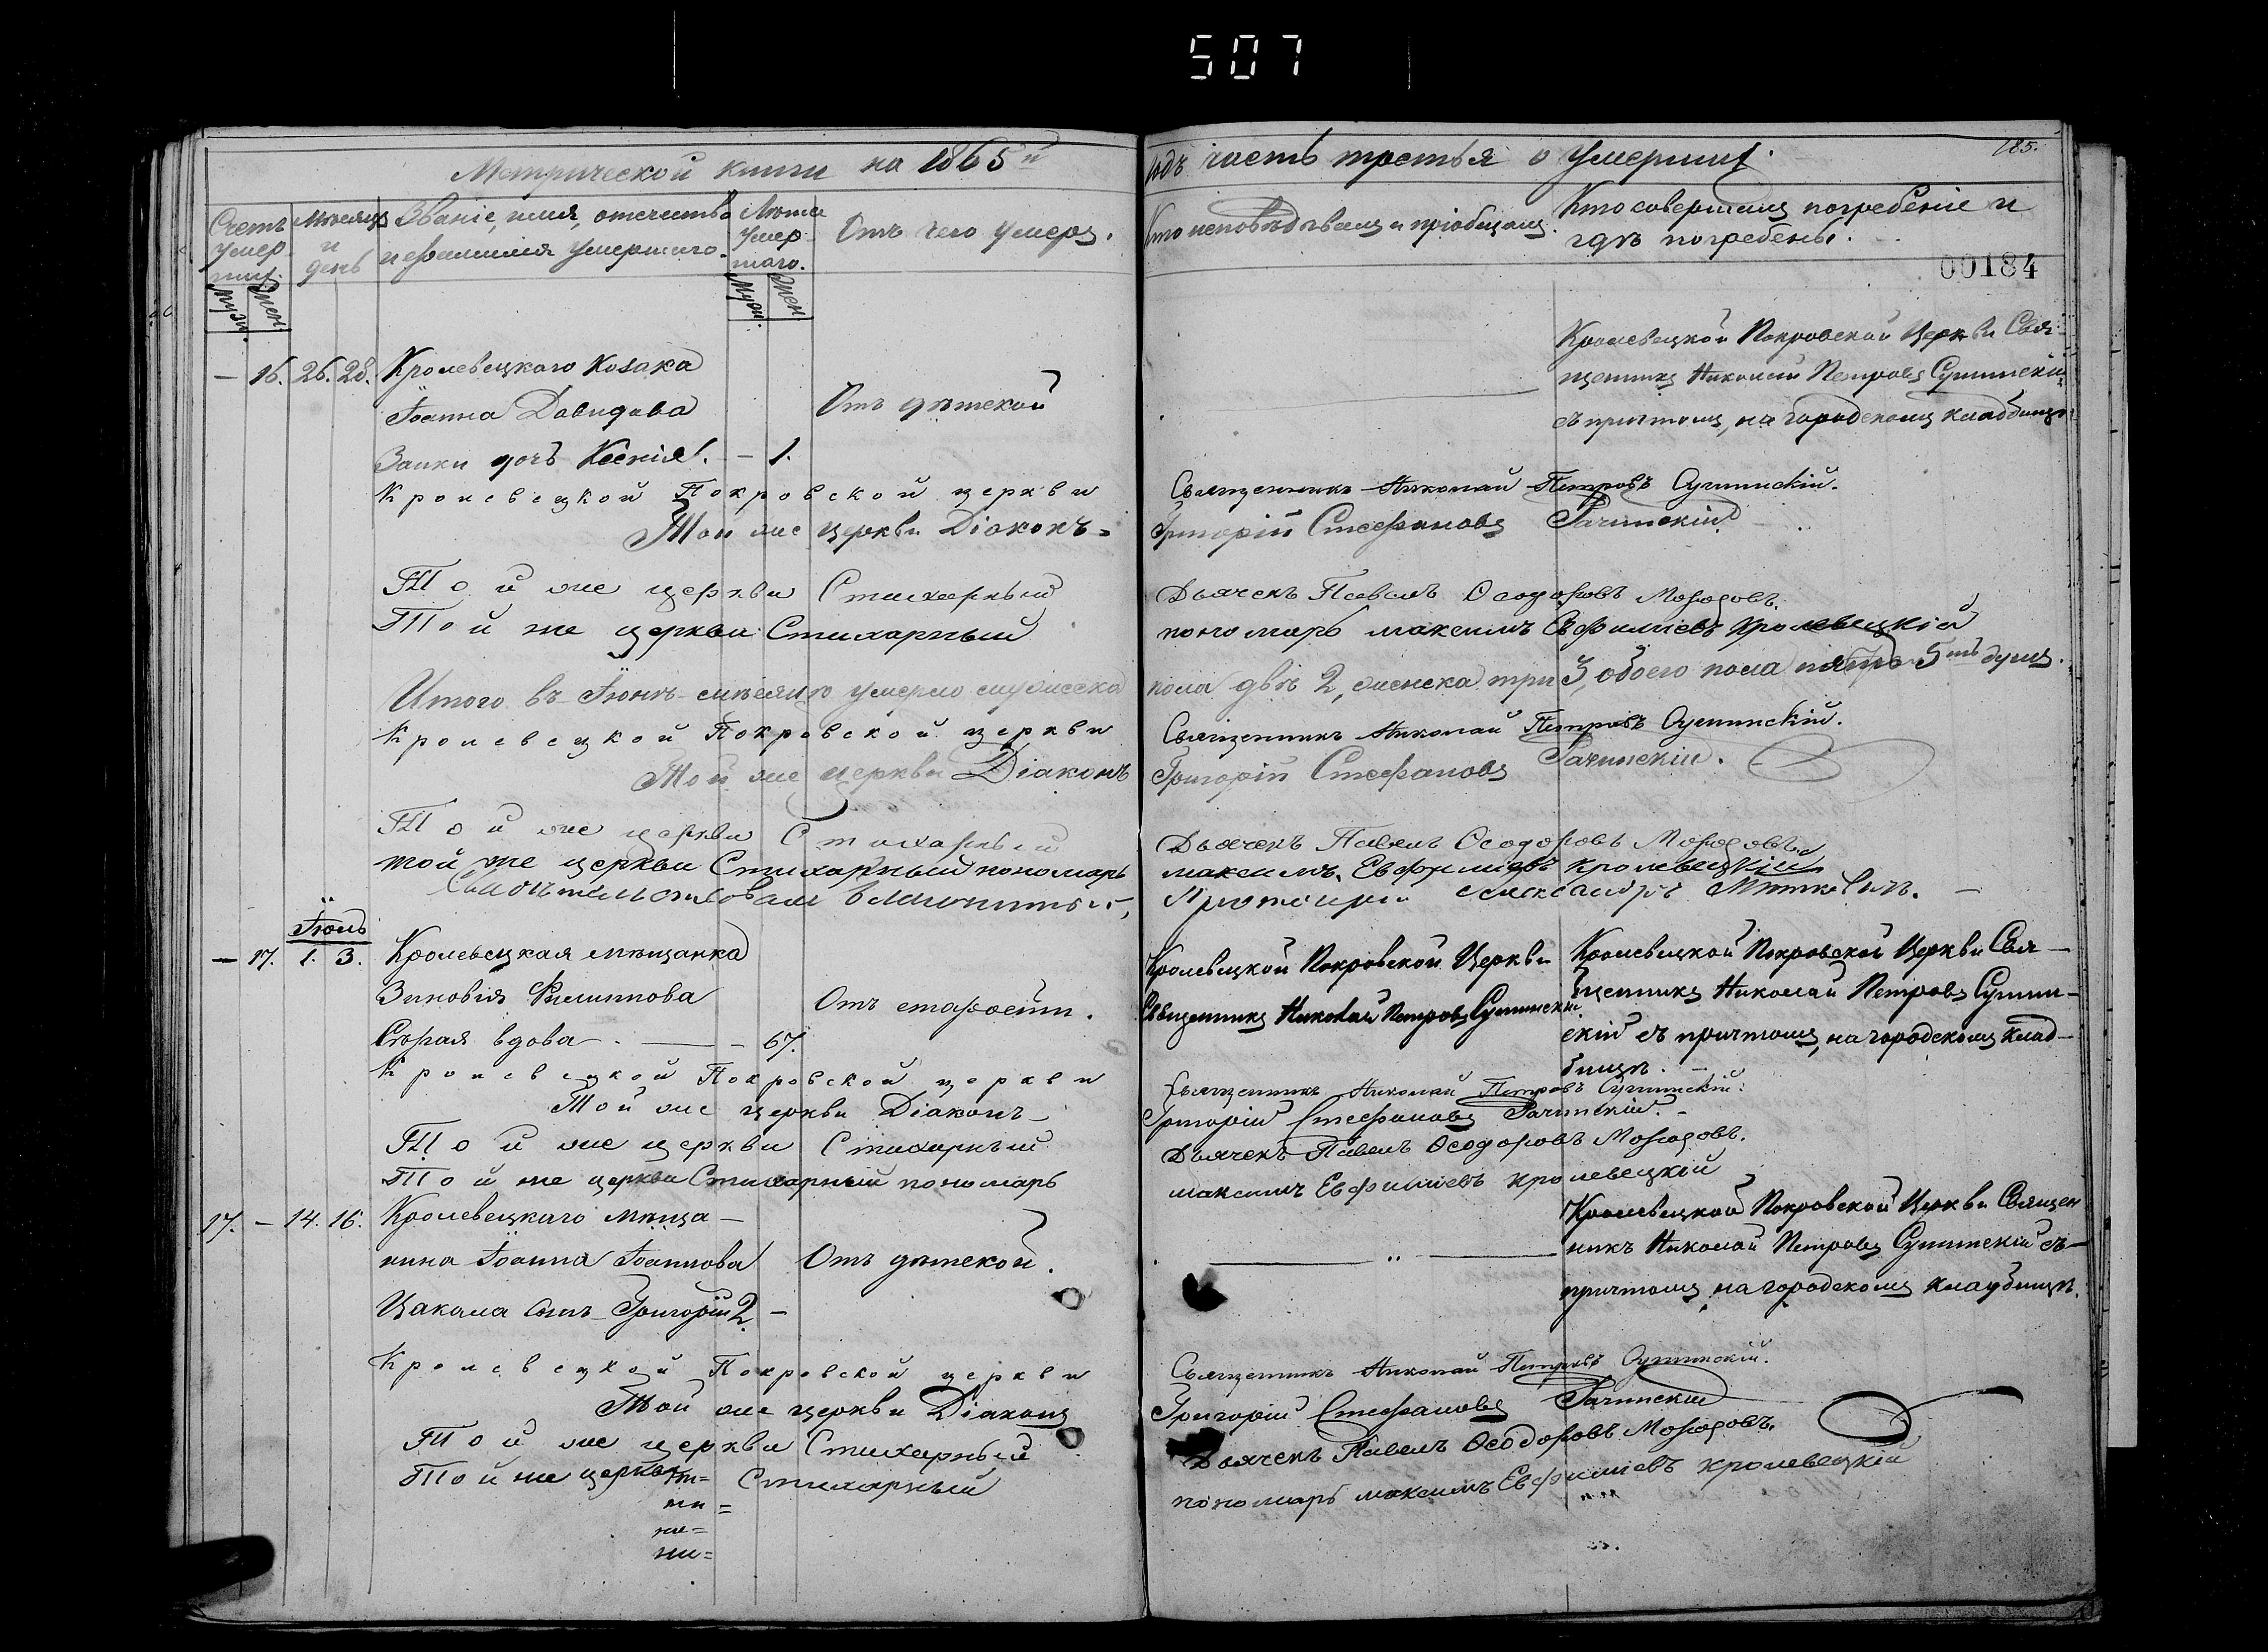 507
Метрической книги на 1865й
годъ часть третья о умершихъ.
185.
Счетъ умершихъ.
Муж.
Жен.
Мѣсяцъ и день
Званіе, имя, отечество
и фамилія умершаго.
Лѣта умершаго.
Муж.
Жен.
Отъ чего умеръ.
Кто исповѣдывалъ и пріобщалъ.
Кто совершалъ погребеніе и
гдѣ погребены.
00184
— 16. 26. 28. Кролевецкаго козака
Іоанна Давидова
Заики дочь Ксенія. — 1.
Отъ дѣтской
Кролевецкой Покровской Церкви Свя-
щенникъ Николай Петровъ Сушинскій
съ причтомъ, на городскомъ кладбищѣ
Кролевецкой Покровской церкви Священникъ Николай Петровъ Сушинскій.
Той же церкви Діаконъ Григорій Стефановъ Рачинскій
Той же церкви Стихарный Дьячекъ Павелъ Ѳеодоровъ
Той же церкви Стихарный пономарь Максимъ Евфиміевъ Кролевецкій
Итого въ Іюнѣ мѣсяцѣ умерло мужеска пола двѣ 2, женска три 3, обоего пола пять 5ть душъ.
Кролевецкой Покровской церкви Священникъ Николай Петровъ Сушинскій.
Той же церкви Діаконъ Григорій Стефановъ Рачинскій.
Той же церкви Стихарный Дьячекъ Павелъ Ѳеодоровъ
той же церкви Стихарный пономарь Максимъ Евфиміевъ Кролевецкій
Протоіерей Александръ
Іюль
— 17. 1. 3. Кролевецкая мѣщанка
Зиновія Филиппова
Сѣрая вдова — 67.
Отъ старости.
Кролевецкой Покровской Церкви
Священникъ Николай Петровъ Сушинскій
Кролевецкой Покровской Церкви Свя-
щенникъ Николай Петровъ Сушин-
скій съ причтомъ, на городскомъ клад-
бищѣ.
Кролевецкой Покровской церкви Священникъ Николай Петровъ Сушинскій.
Той же церкви Діаконъ Григорій Стефановъ Рачинскій.
Той же церкви Стихарный Дьячекъ Павелъ Ѳеодоровъ
Той же церкви Стихарный пономарь Максимъ Евфиміевъ Кролевецкій
17. — 14. 16. Кролевецкаго мѣща-
нина Іоанна Іоаннова
Цакала сынъ Григорій 2. —
Отъ дѣтской.
Кролевецкой Покровской Церкви Священ
никъ Николай Петровъ Сушинскій съ
причтомъ на городскомъ кладбищѣ.
Кролевецкой Покровской церкви Священникъ Николай Петровъ Сушинскій.
Той же церкви Діаконъ Григорій Стефановъ Рачинскій
Той же церкви Стихарный Дьячекъ Павелъ Ѳеодоровъ
Той же церкви Стихарный пономарь Максимъ Евфиміевъ Кролевецкій